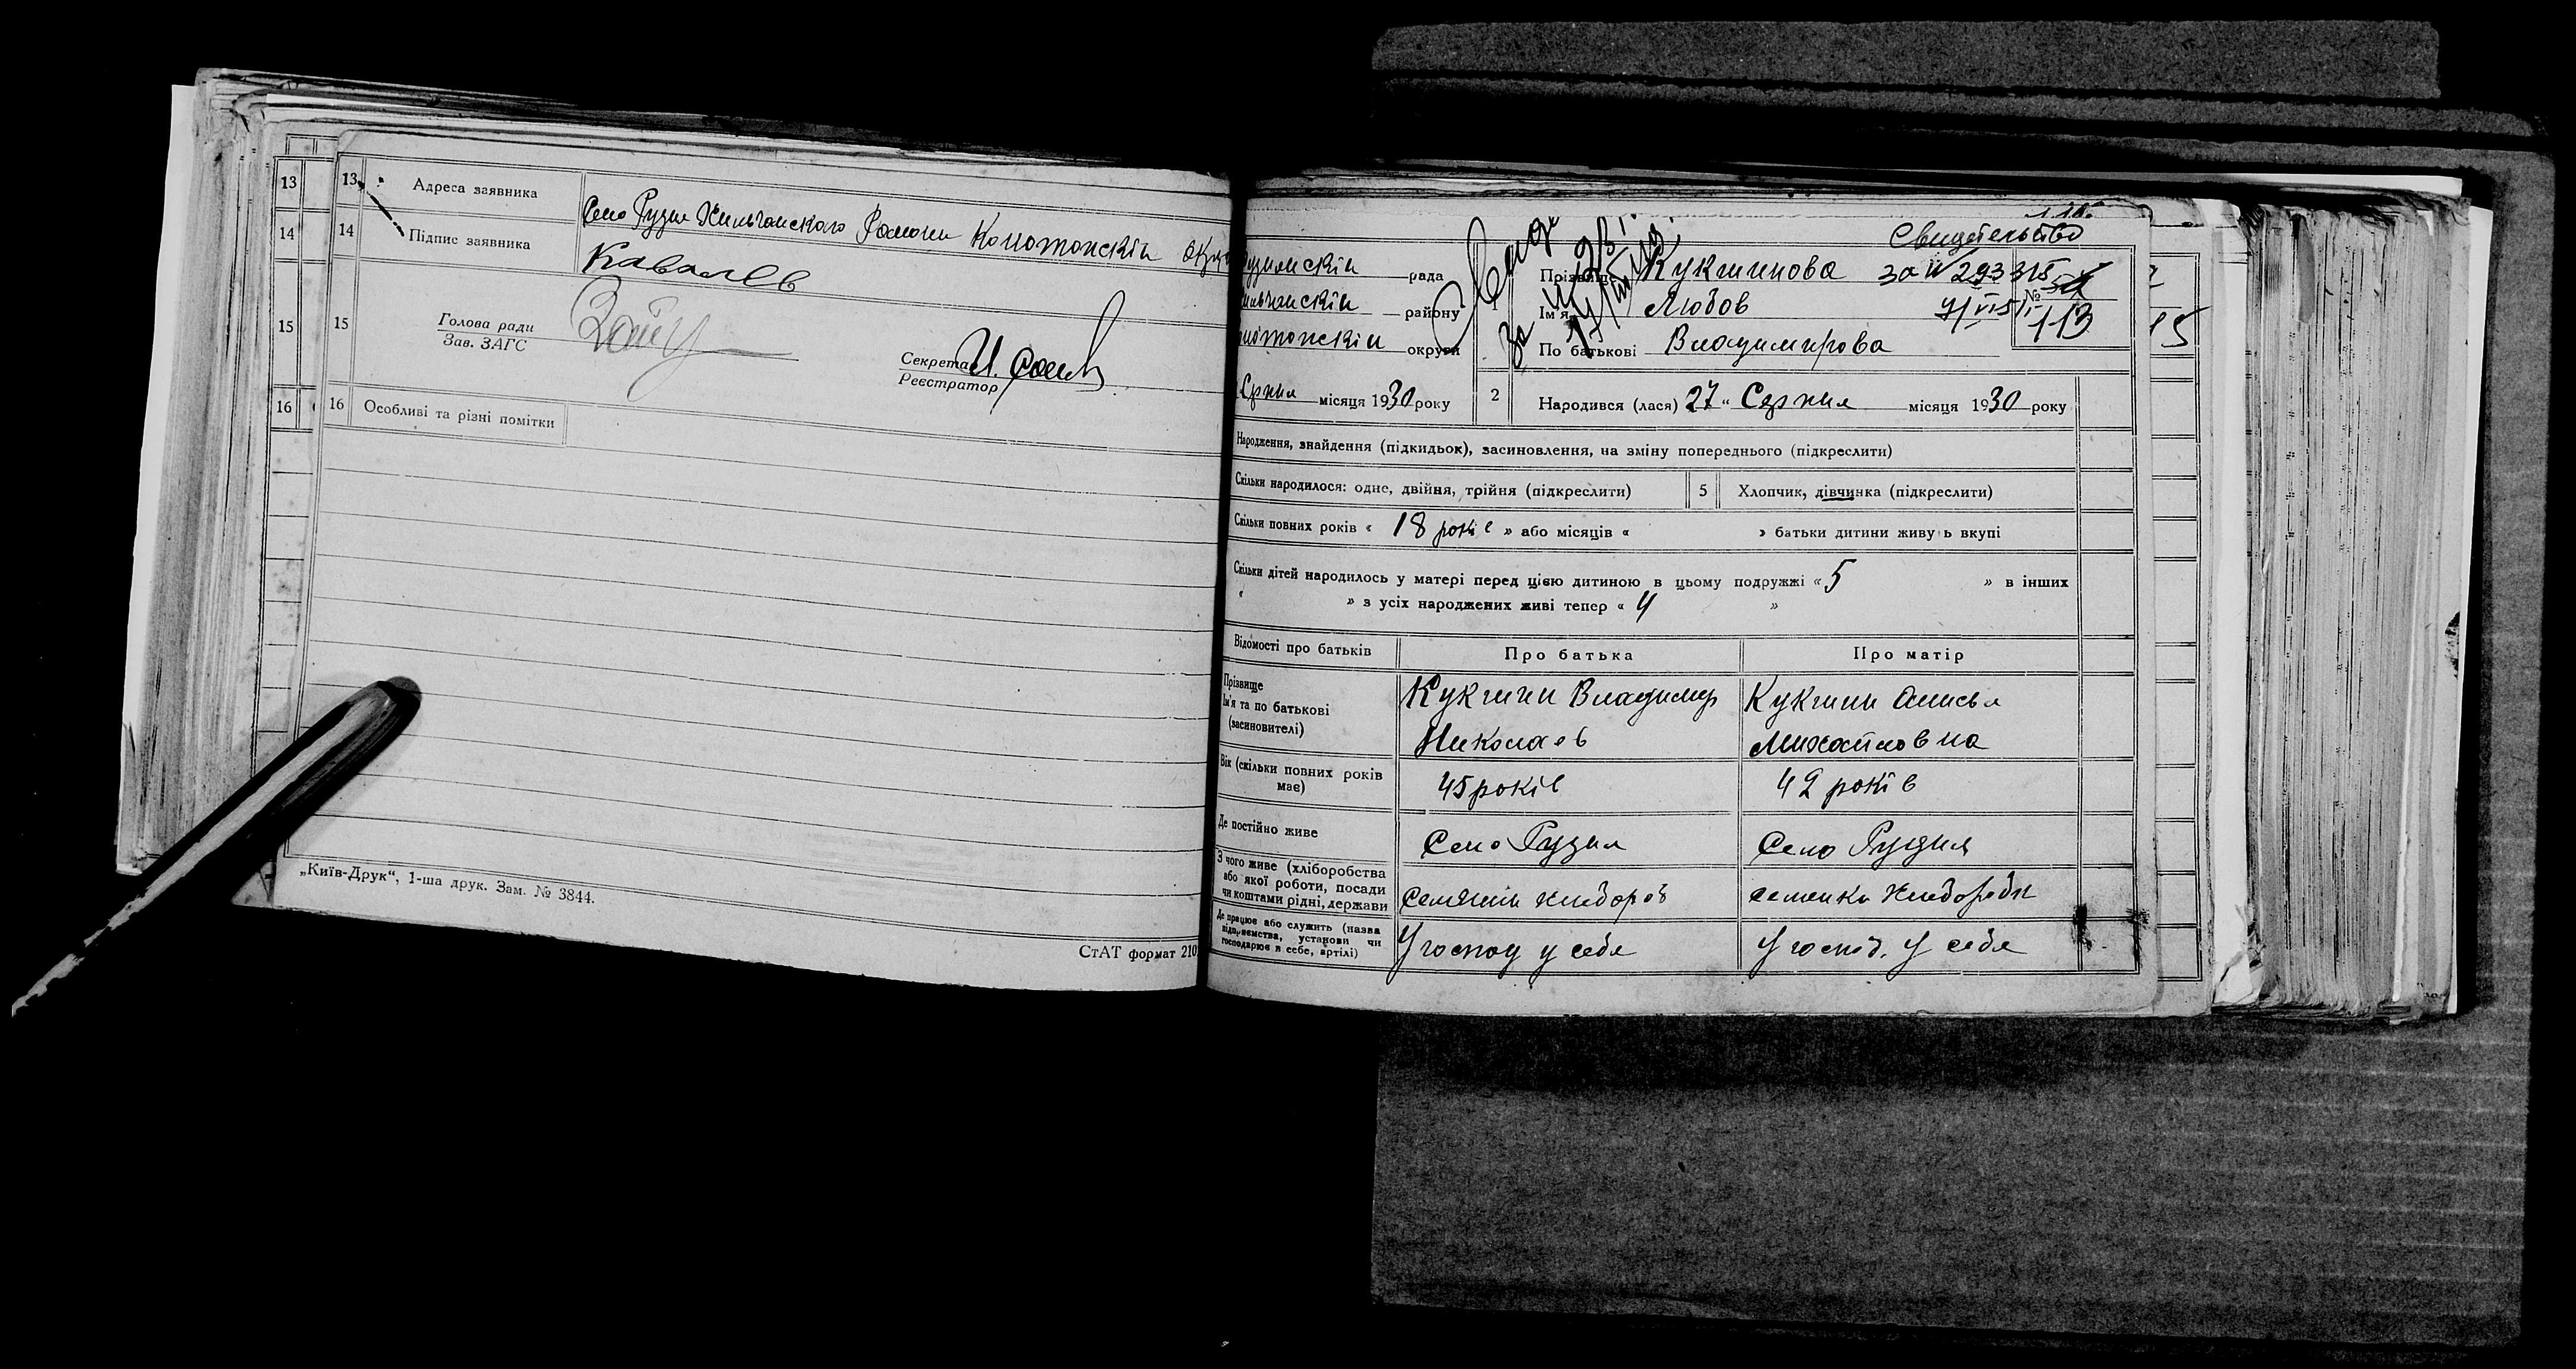 13
13
Адреса заявника
Село Рудня Хильчанского Району Конотопскій
14
14
Підпис заявника
Кавалев
15
15
Голова ради
Зав. ЗАГС
Секретар
Реєстратор
16
16
Особливі та різні помітки
„Київ-Друк“, 1-ша друк. Зам. № 3844.
СтАТ формат 210
Свидетельство
рада
Кукшинова за № 293315
району
Ім'я
Любов
№
113
округи
По батькові Владимирова
Серпня місяця 1930 року
2
Народився (лася) 27 „ Серпня місяця 1930 року
Народження, знайдення (підкидьок), засиновлення, на зміну попереднього (підкреслити)
Скільки народилося: одне, двійня, трійня (підкреслити)
5
Хлопчик, дівчинка (підкреслити)
Скільки повних років « 18 років » або місяців « » батьки дитини живуть вкупі
Скільки дітей народилось у матері перед цією дитиною в цьому подружжі « 5 » в інших
« » з усіх народжених живі тепер « 4 »
Відомості про батьків
Про батька
Про матір
Прізвище
Ім'я та по батькові
(засиновителі)
Кукшин Владимир
Николаев
Кукшин Анисья
Михайловна
Вік (скільки повних років
має)
45 років
42 років
Де постійно живе
Село Рудня
Село Рудня
З чого живе (хліборобства
або якої роботи, посади
чи коштами рідні, держави
Де працює або служить (назва
підприємства, установи чи
господарює в себе, артілі)
У господ у себя
У госпід. У себя